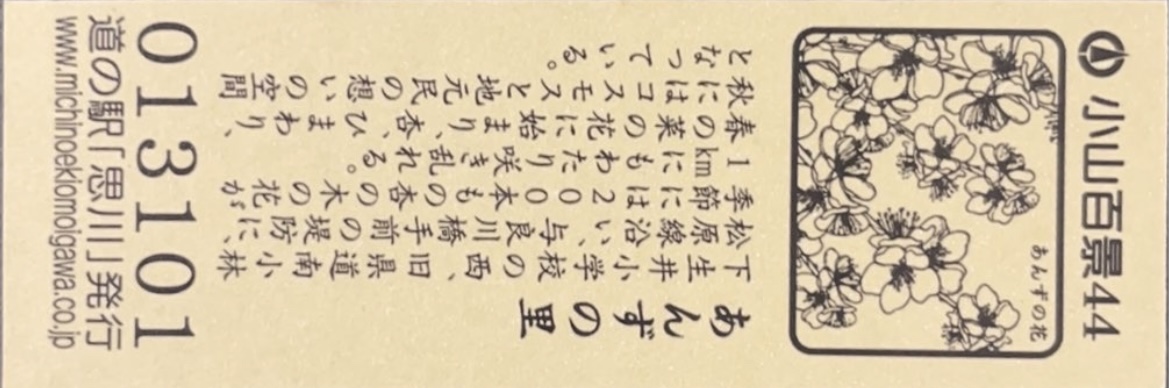 小山百景44
あんずの花
あんずの里
下生井小学校の西、旧県道南小林
松原線沿い、与良川橋手前の堤防に、
季節には200本もの杏の木の花が
1kmにもわたり咲き乱れる。
春の菜の花に始まり、杏、ひまわり、
秋にはコスモスと地元民の想いの空間
となっている。
013101
道の駅「思川」発行
www.michinoekiomoigawa.co.jp